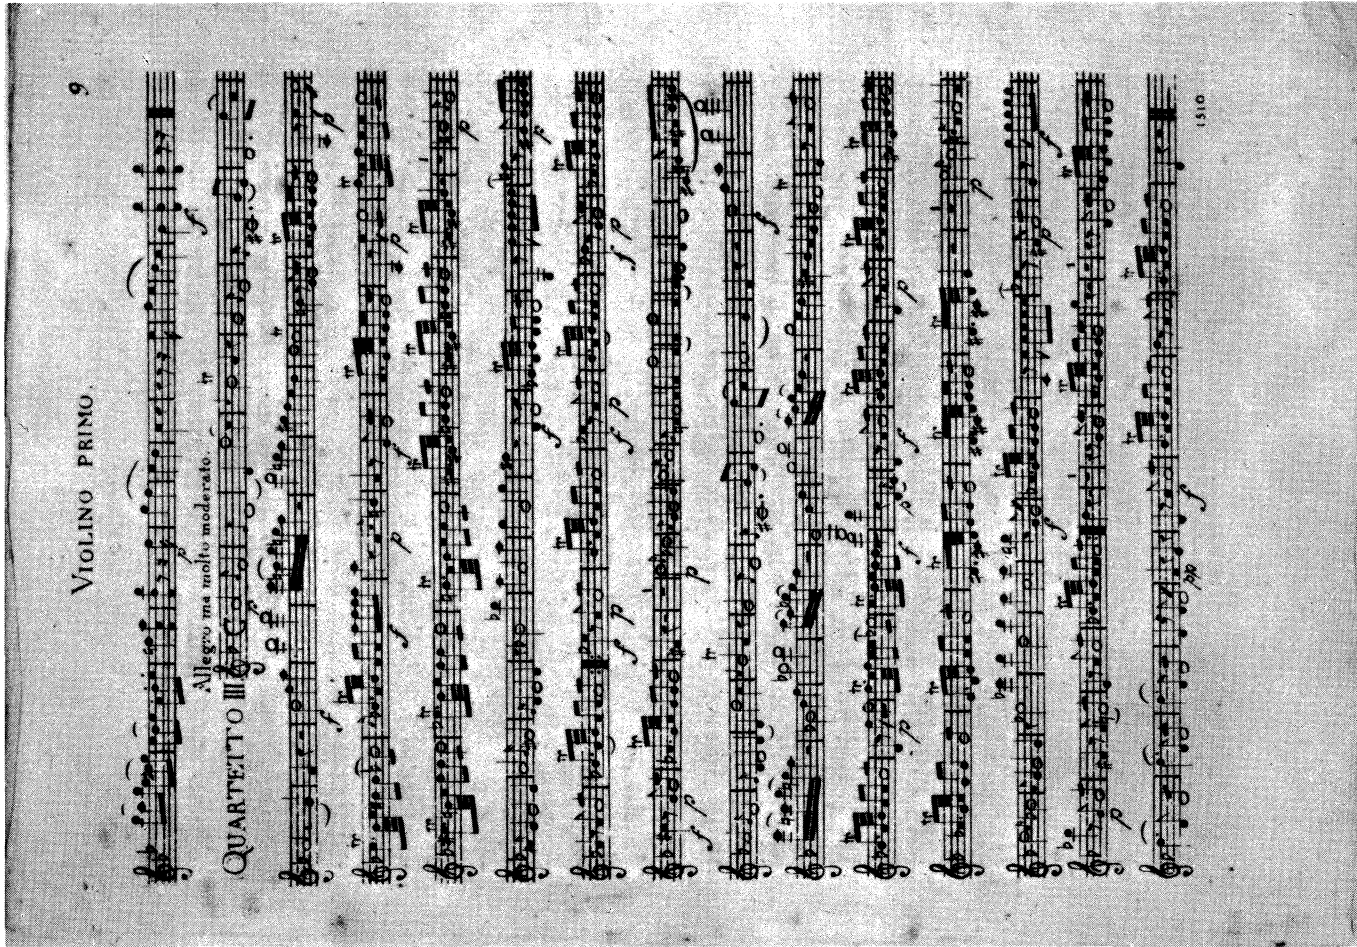 VIOLINO PRIMO
9
Allegro ma molto moderato.
QUARTETTO III
1510